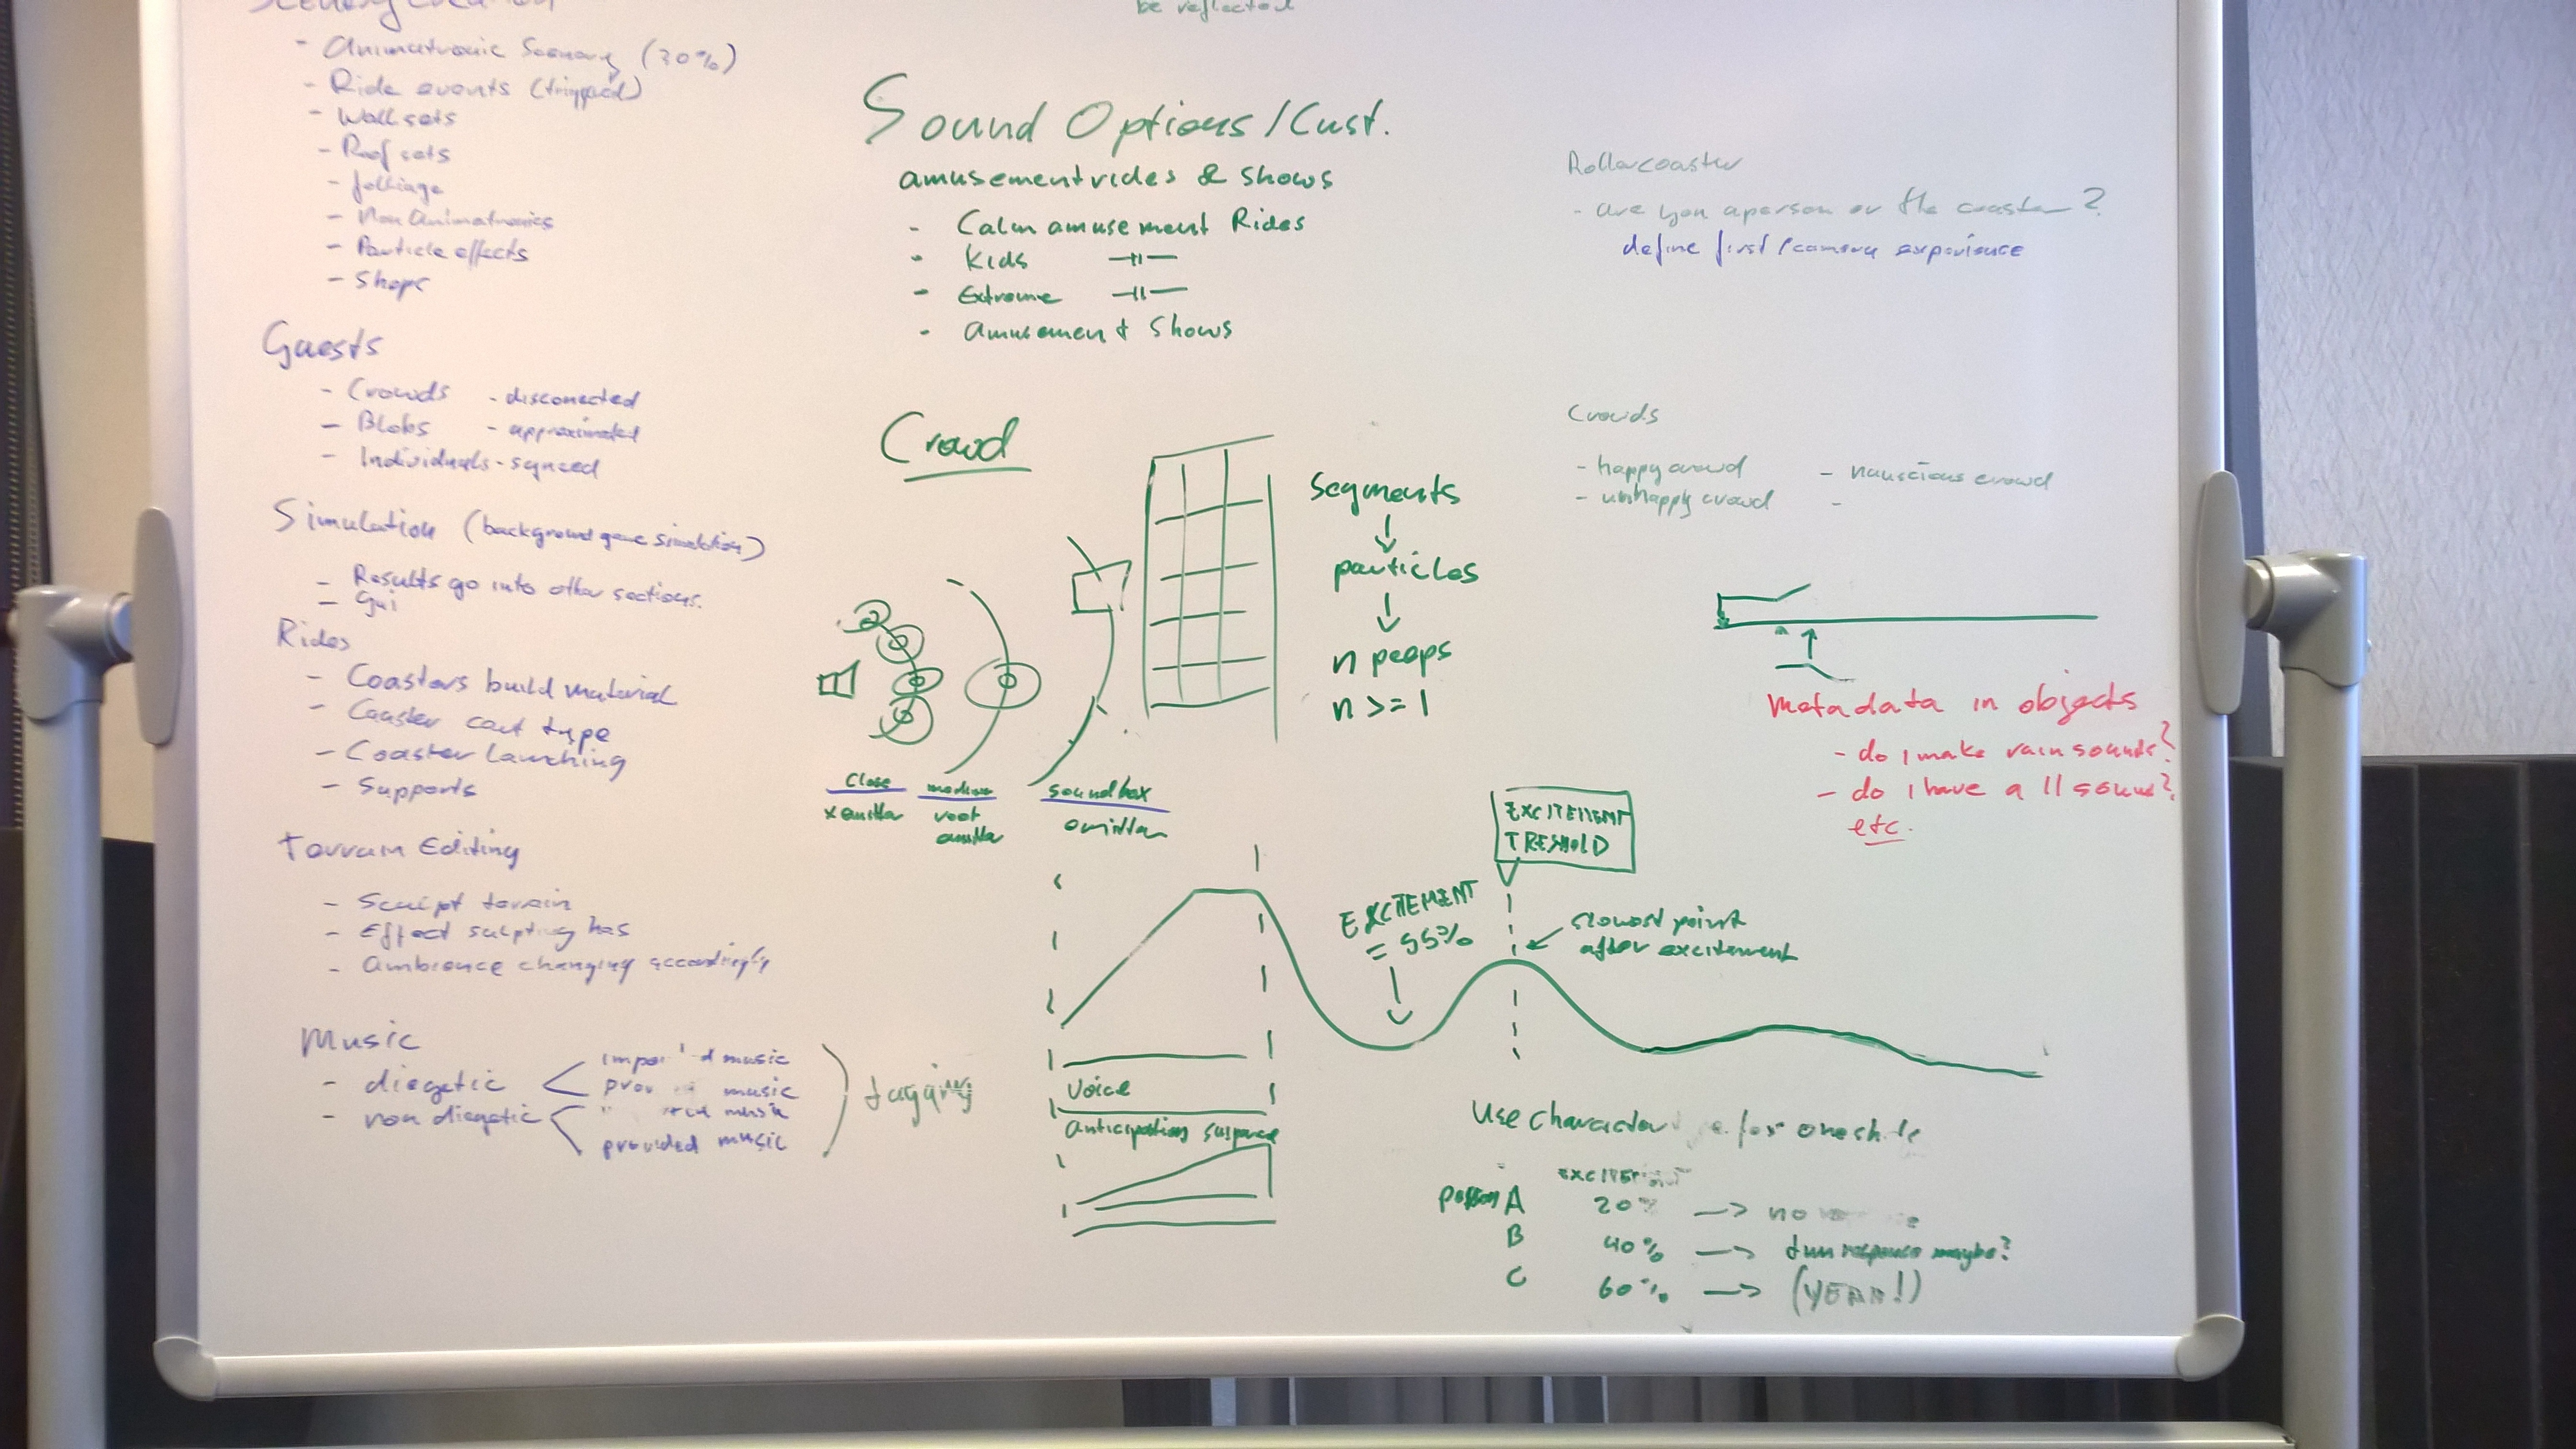 be reflected
- Animatronic Scenery (30%)
- Ride events (trigged)
- Wall sets
- Roof sets
- folliage
- Non Animatronics
- Particle effects
- Shops
Guests
- Crowds - disconected
- Blobs - approximated
- Individuals - synced
Simulation (background game simulation)
- Results go into other sections.
- Gui
Rides
- Coasters build material
- Coaster cart type
- Coaster Launching
- Supports
Terrain Editing
- Sculpt terrain
- Effect sculpting has
- Ambience changing accordingly
Music
- diegetic
music
music
- non diegetic
music
provided music
tagging
Sound Options/Cust.
amusementrides & shows
- Calm amusement Rides
- Kids —||—
- Extreme —||—
- Amusement Shows
Crowd
Segments
↓
particles
↓
n peeps
n >= 1
Close
x emitter
medium
root
emitter
soundbox
emitter
Rollercoaster
- are you a person or the coaster?
define first/camera experience
Crowds
- happy crowd - nauscious crowd
- unhappy crowd -
metadata in objects
- do I make rain sounds?
- do I have a || sound?
etc.
EXCITEMENT
TRESHOLD
EXCITEMENT
= 55%
slowest point
after excitement
Voice
Anticipation suspence
Use character for
EXCITEMENT
person A 20% → no
B 40% → response maybe?
C 60% → (YEAH!)